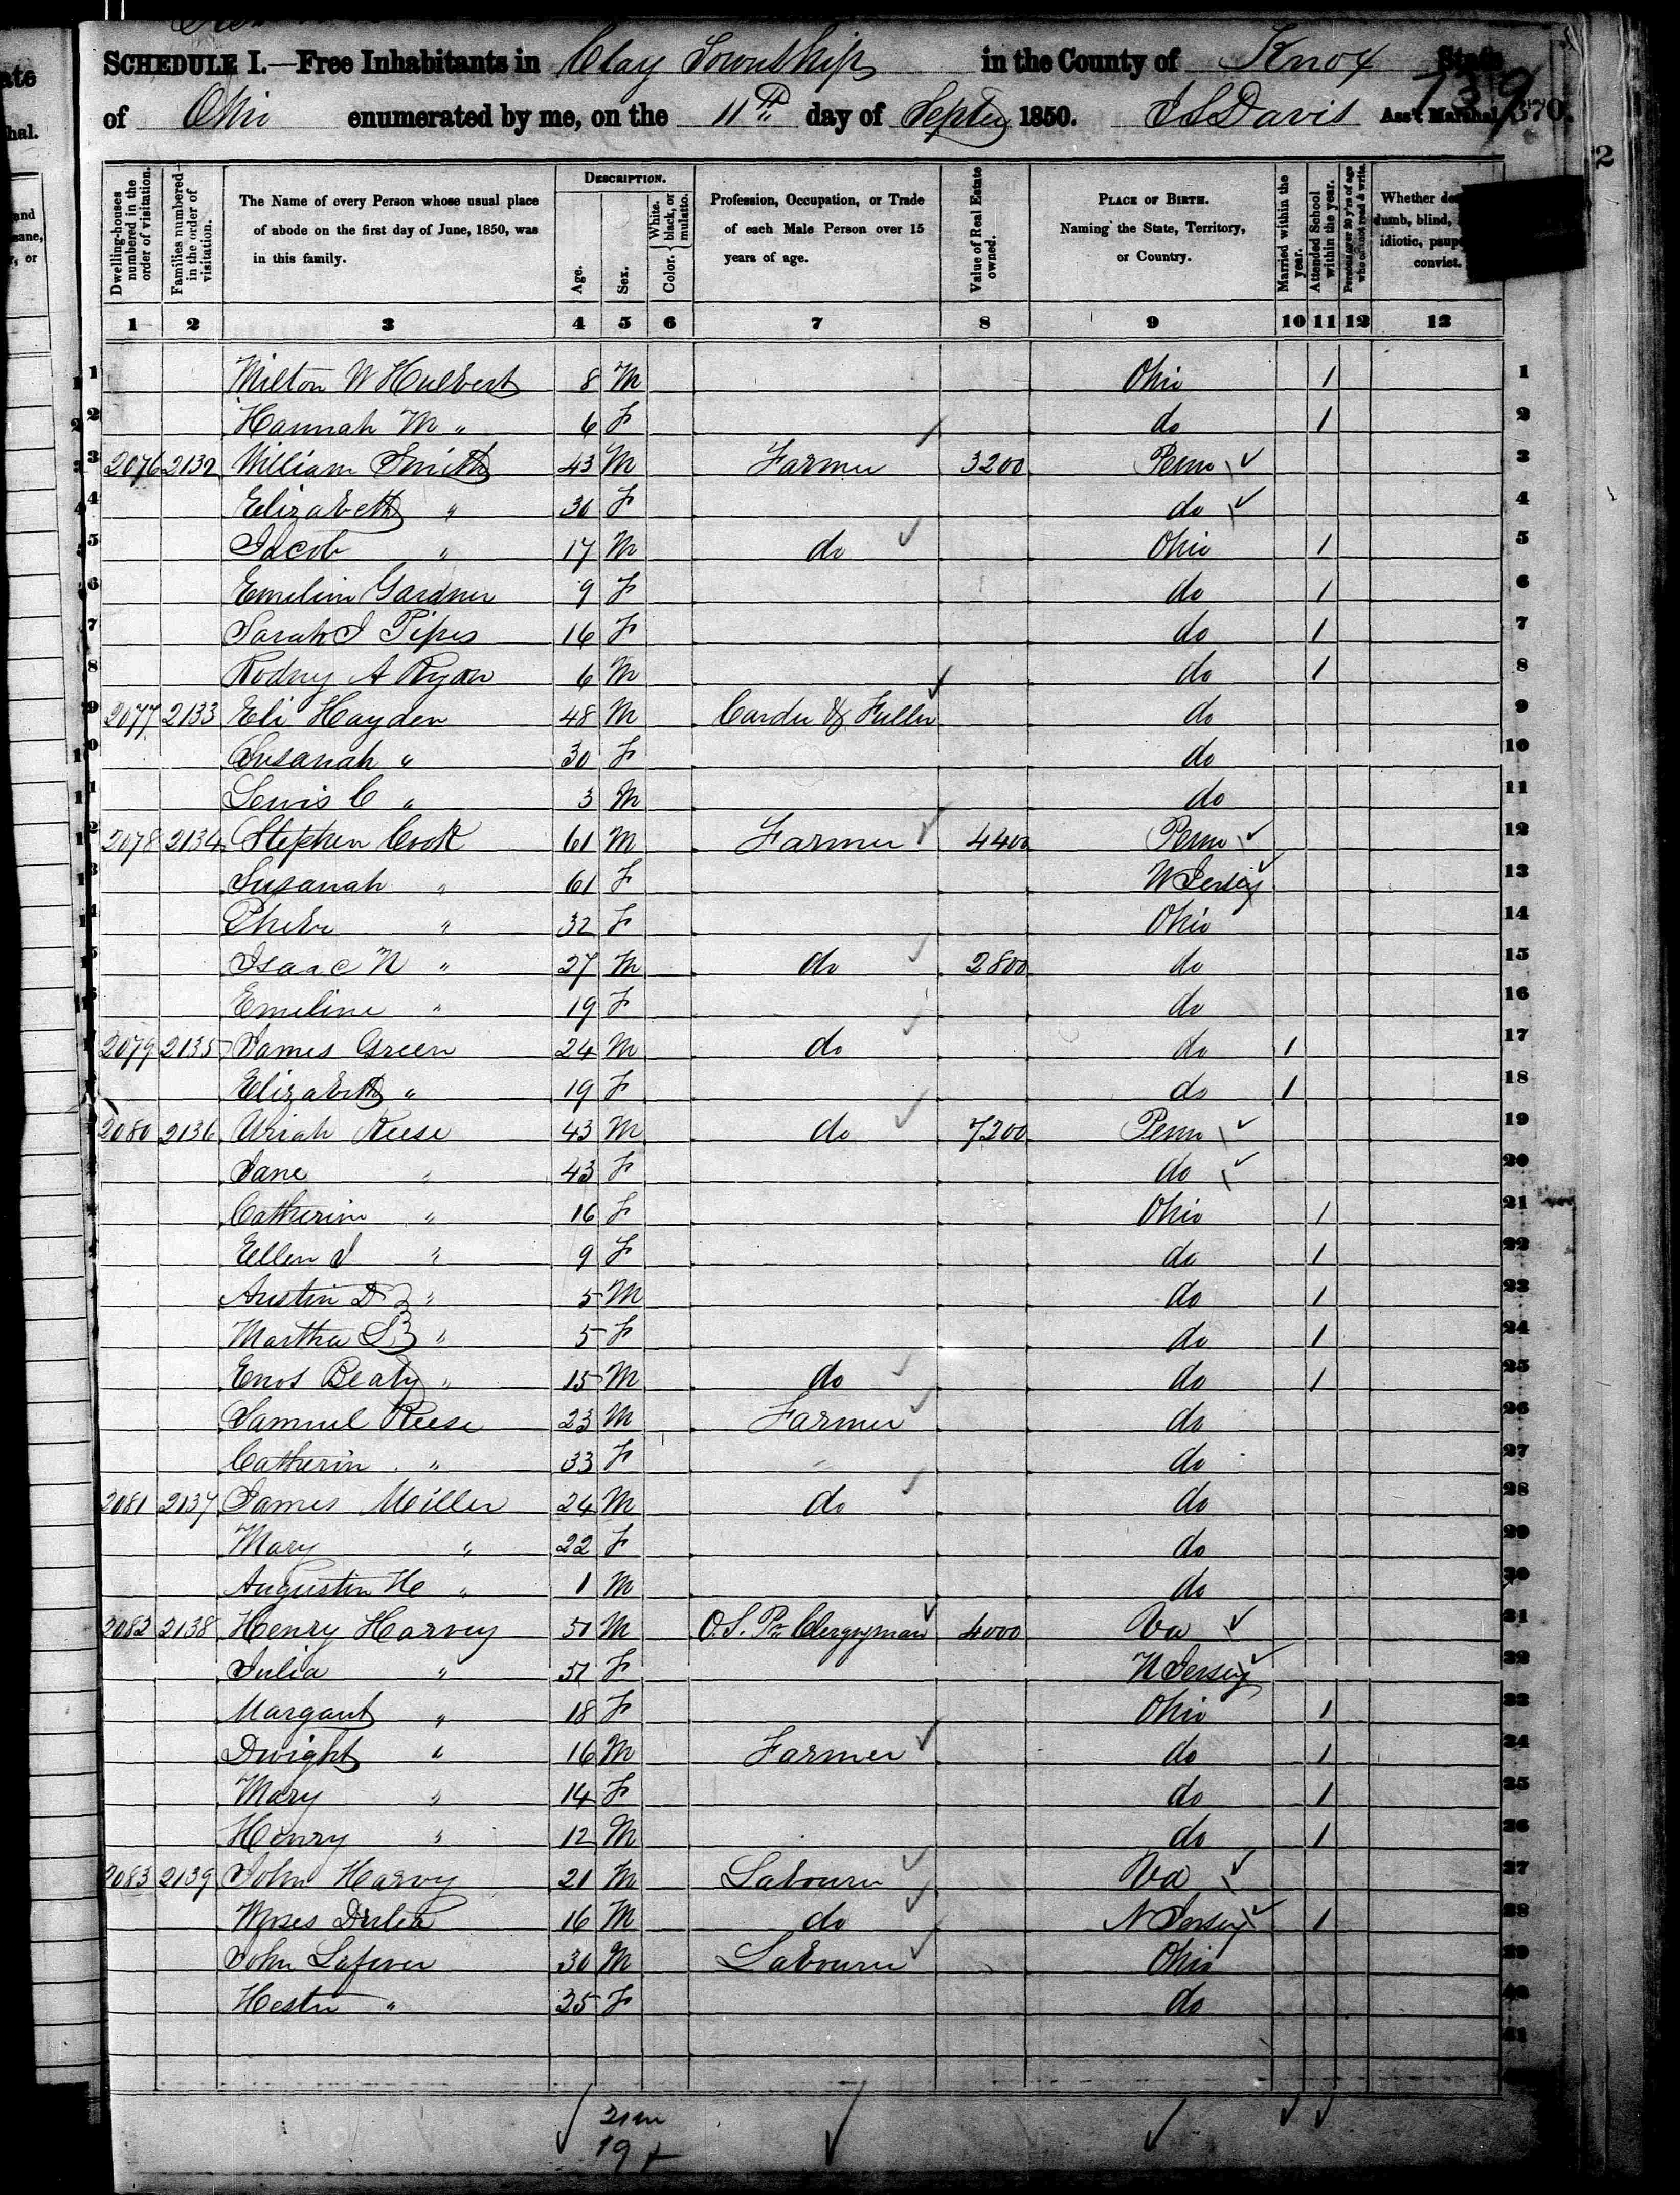 SCHEDULE I.—Free Inhabitants in Clay Township in the County of Knox State
of Ohio enumerated by me, on the 11th day of Septer 1850. I S Davis Ass't Marshal. 739 370.
Dwelling-houses numbered in the order of visitation.
Families numbered in the order of visitation.
The Name of every Person whose usual place of abode on the first day of June, 1850, was in this family.
DESCRIPTION.
Age.
Sex.
Color. { White, black, or mulatto.
Profession, Occupation, or Trade of each Male Person over 15 years of age.
Value of Real Estate owned.
PLACE OF BIRTH. Naming the State, Territory, or Country.
Married within the year.
Attended School within the year.
Persons over 20 y'rs of age who cannot read & write.
Whether dumb, blind, idiotic, convict.
1 2 3 4 5 6 7 8 9 10 11 12 13
1 Milton W Hulbert 8 M Ohio 1 1
2 Hannah M " 6 F do 1 2
3 2076 2132 William Smith 43 M Farmer 3200 Penn 3
4 Elizabeth " 30 F do 4
5 Jacob " 17 M do Ohio 1 5
6 Emelin Gardner 9 F do 1 6
7 Sarah J Pipes 16 F do 1 7
8 Rodny A Ryan 6 M do 1 8
9 2077 2133 Eli Hayden 48 M Carder & Fuller do 9
10 Susanah " 30 F do 10
11 Lewis C " 3 M do 11
12 2078 2134 Stephen Cook 61 M Farmer 4400 Penn 12
13 Susanah " 61 F N Jersey 13
14 Phebe " 32 F Ohio 14
15 Isaac N " 27 M do 2800 do 15
16 Emeline " 19 F do 16
17 2079 2135 James Green 24 M do do 1 17
18 Elizabeth " 19 F do 1 18
19 2080 2136 Uriah Reese 43 M do 7200 Penn 19
20 Jane " 43 F do 20
Catherin " 16 F Ohio 1 21
Ellen J " 9 F do 1 22
Austin D " 5 M do 1 23
Martha L " 5 F do 1 24
Enos Beaty " 15 M do do 1 25
Samuel Reese 23 M Farmer do 26
Catherin " 33 F do 27
2081 2137 James Miller 24 M do do 28
Mary " 22 F do 29
Augustin H " 1 M do 30
2082 2138 Henry Harvey 51 M O.S. Pr Clergyman 4000 Va 31
Julia " 51 F N Jersey 32
Margaret " 18 F Ohio 1 33
Dwight " 16 M Farmer do 1 34
Mary " 14 F do 1 35
Henry " 12 M do 1 36
2083 2139 John Harvy 21 M Labourer Va 37
Moses 16 M do N Jersey 1 38
John Lafever 30 M Labourer Ohio 39
Hester " 25 F do 40
41
21 m
19 f